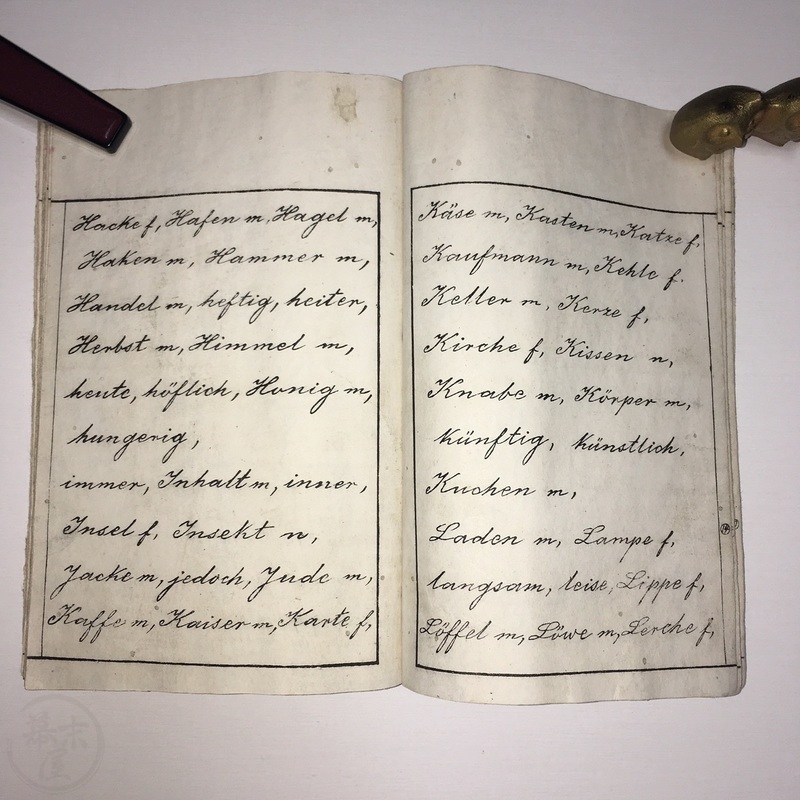 Hacke f, Hafen m, Hagel m,
Haken m, Hammer m,
Handel m, heftig, heiter,
Herbst m, Himmel m,
heute, höflich, Honig m,
hungerig,
immer, Inhalt m, inner,
Insel f, Insekt n,
Jacke m, jedoch, Jude m,
Kaffe m, Kaiser m, Karte f,
Käse m, Kasten m, Katze f,
Kaufmann m, Kehle f.
Keller m, Kerze f,
Kirche f, Kissen n,
Knabe m, Körper m,
künftig, künstlich,
Kuchen m,
Laden m, Lampe f,
langsam, leise, Lippe f,
Löffel m, Löwe m, Lerche f,
幕末屋